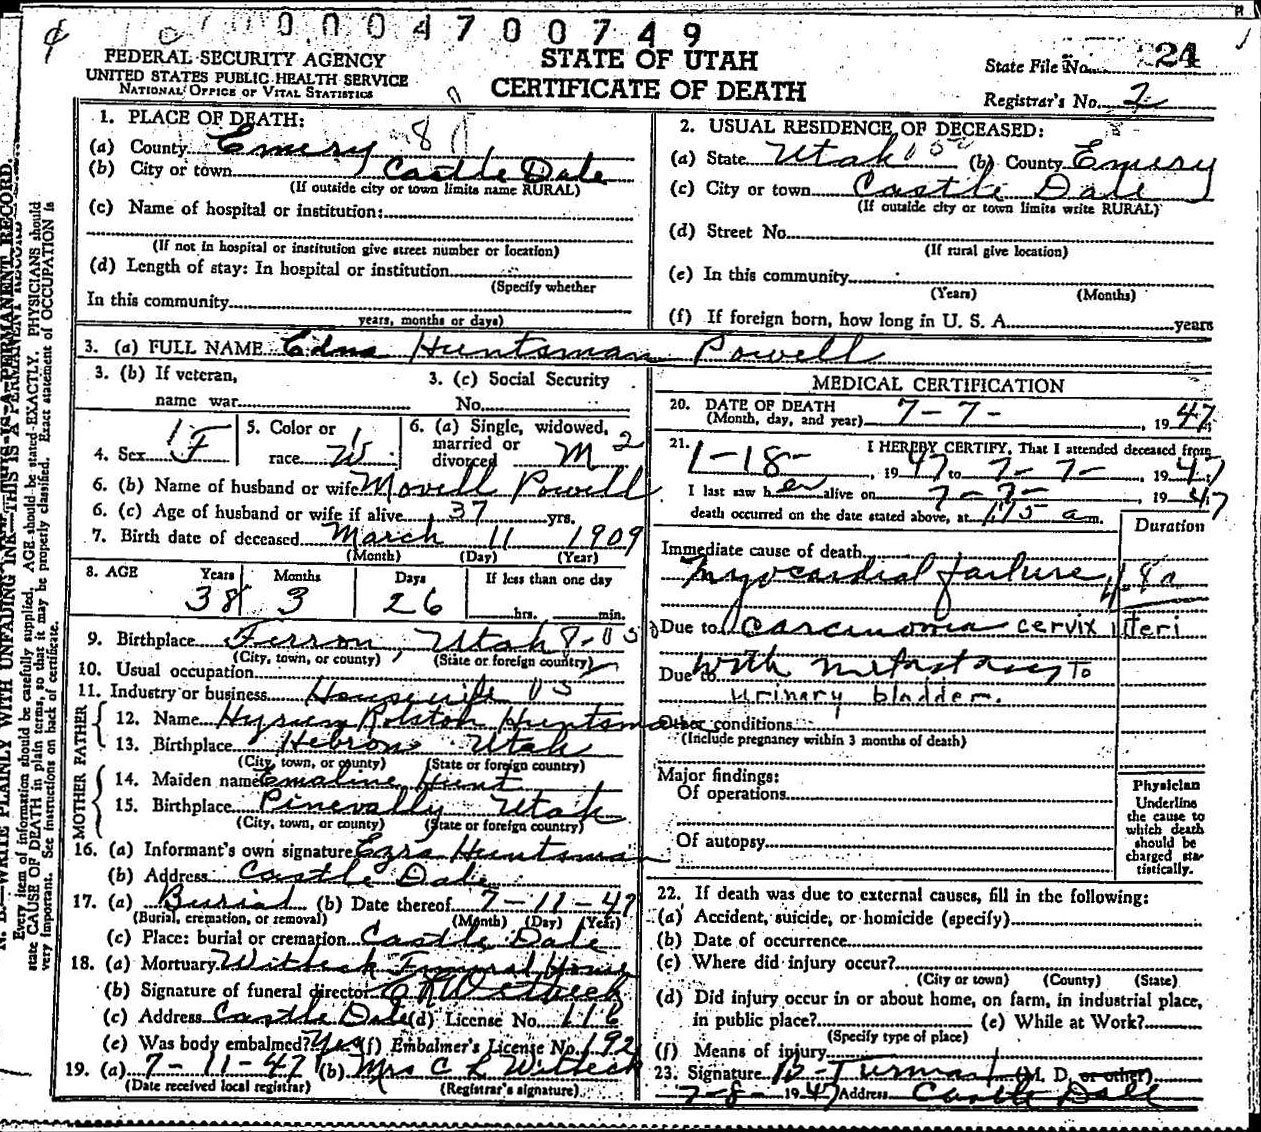 0004700749
FEDERAL SECURITY AGENCY
UNITED STATES PUBLIC HEALTH SERVICE
NATIONAL OFFICE OF VITAL STATISTICS
STATE OF UTAH
CERTIFICATE OF DEATH
State File No. 24
Registrar's No. 2
N. B.—WRITE PLAINLY WITH UNFADING INK—THIS IS A PERMANENT RECORD.
Every item of information should be carefully supplied. AGE should be stated EXACTLY. PHYSICIANS should
state CAUSE OF DEATH in plain terms, so that it may be properly classified. Exact statement of OCCUPATION is
very important. See instructions on back of certificate.
1. PLACE OF DEATH:
(a) County Emery
(b) City or town Castle Dale
(If outside city or town limits name RURAL)
(c) Name of hospital or institution:
(If not in hospital or institution give street number or location)
(d) Length of stay: In hospital or institution
(Specify whether
In this community
years, months or days)
2. USUAL RESIDENCE OF DECEASED:
(a) State Utah (b) County Emery
(c) City or town Castle Dale
(If outside city or town limits write RURAL)
(d) Street No.
(If rural give location)
(e) In this community
(Years) (Months)
(f) If foreign born, how long in U. S. A. years
3. (a) FULL NAME Edna Huntsman Powell
3. (b) If veteran,
name war
3. (c) Social Security
No.
4. Sex F
5. Color or
race W
6. (a) Single, widowed,
married or
divorced M 2
6. (b) Name of husband or wife Movell Powell
6. (c) Age of husband or wife if alive 37 yrs.
7. Birth date of deceased March 11 1909
(Month) (Day) (Year)
8. AGE Years Months Days If less than one day
38 3 26 hrs. min.
9. Birthplace Ferron, Utah
(City, town, or county) (State or foreign country)
10. Usual occupation
11. Industry or business Housewife
FATHER
12. Name Hyrum Rolston Huntsman
13. Birthplace Hebron Utah
(City, town, or county) (State or foreign country)
MOTHER
14. Maiden name Emaline Hunt
15. Birthplace Pinevally Utah
(City, town, or county) (State or foreign country)
16. (a) Informant's own signature Ezra Huntsman
(b) Address Castle Dale
17. (a) Burial (b) Date thereof 7-11-47
(Burial, cremation, or removal) (Month) (Day) (Year)
(c) Place: burial or cremation Castle Dale
18. (a) Mortuary Witbeck Funeral Home
(b) Signature of funeral director Witbeck
(c) Address Castle Dale (d) License No. 116
(e) Was body embalmed? Yes (f) Embalmer's License No. 192
19. (a) 7-11-47 (b) Mrs C L Witbeck
(Date received local registrar) (Registrar's signature)
MEDICAL CERTIFICATION
20. DATE OF DEATH
(Month, day, and year) 7-7-, 1947
21. I HEREBY CERTIFY, That I attended deceased from
1-18-, 1947 to 7-7-, 1947
I last saw her alive on 7-7-, 1947
death occurred on the date stated above, at 1:15 a m.
Duration
Immediate cause of death
Myocardial failure,
Due to carcinoma cervix uteri
Due to with metastases To
urinary bladder.
Other conditions
(Include pregnancy within 3 months of death)
Major findings:
Of operations
Of autopsy
Physician
Underline
the cause to
which death
should be
charged sta-
tistically.
22. If death was due to external causes, fill in the following:
(a) Accident, suicide, or homicide (specify)
(b) Date of occurrence
(c) Where did injury occur?
(City or town) (County) (State)
(d) Did injury occur in or about home, on farm, in industrial place,
in public place? (e) While at Work?
(Specify type of place)
(f) Means of injury
23. Signature (M. D. or other)
7-8-1947 Address Castle Dale